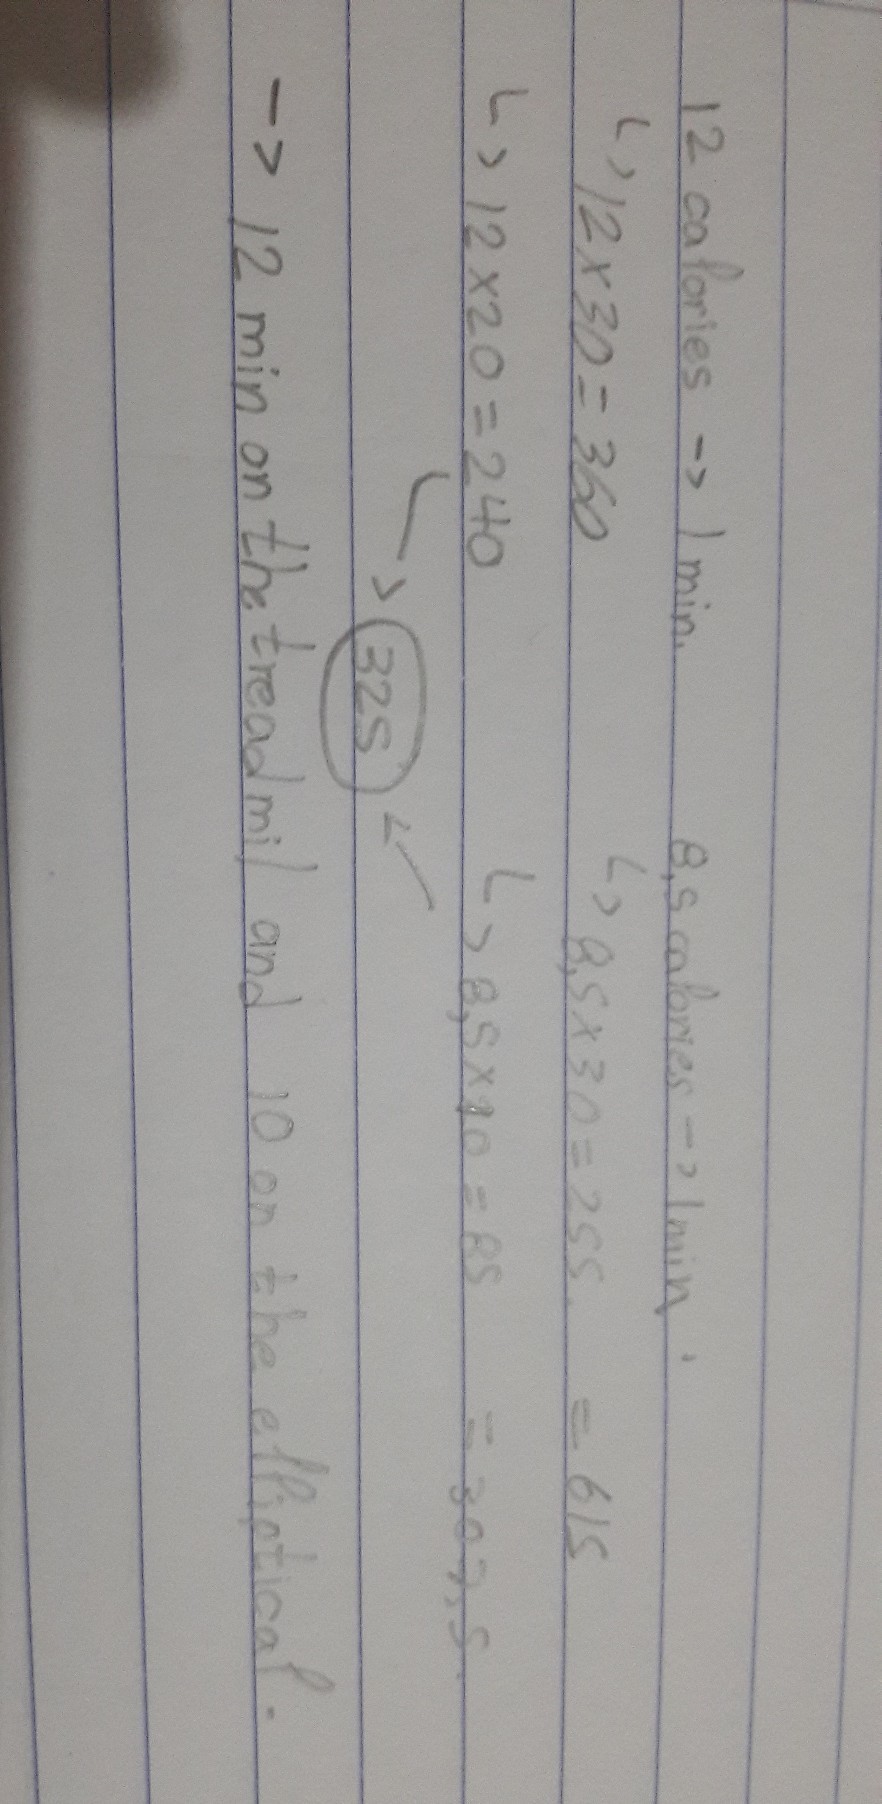 12 calories -> 1 min. 8,5 calories -> 1 min.
↳ 12x30=360 ↳ 8,5x30=255. = 615
↳ 12x20=240 ↳ 8,5x10=85 = 307,5.
325
-> 12 min on the treadmil and 10 on the elliptical.